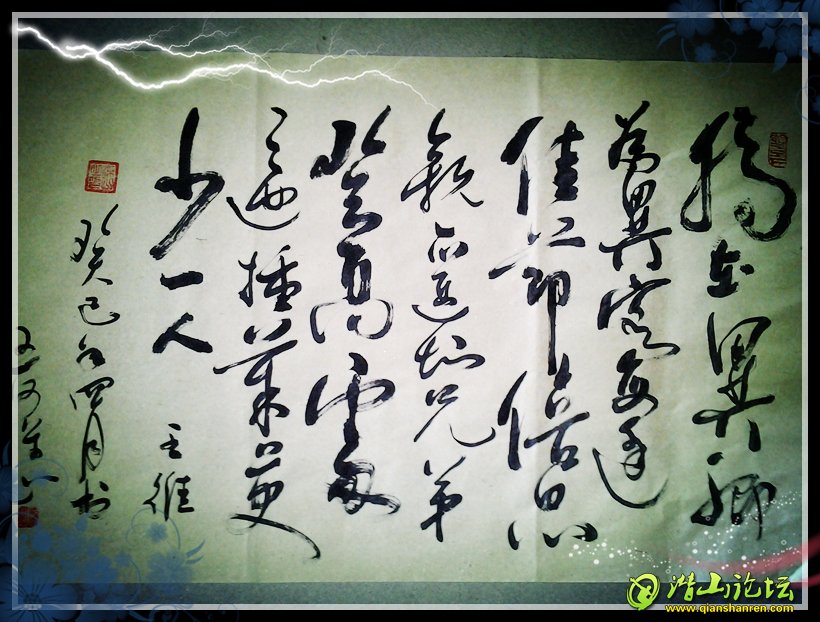 獨在異鄉
為異客每逢
佳節倍思
親遥知兄弟
登高處
遍插茱萸
少一人
王維
癸巳年四月書
潜山论坛
www.qianshanren.com